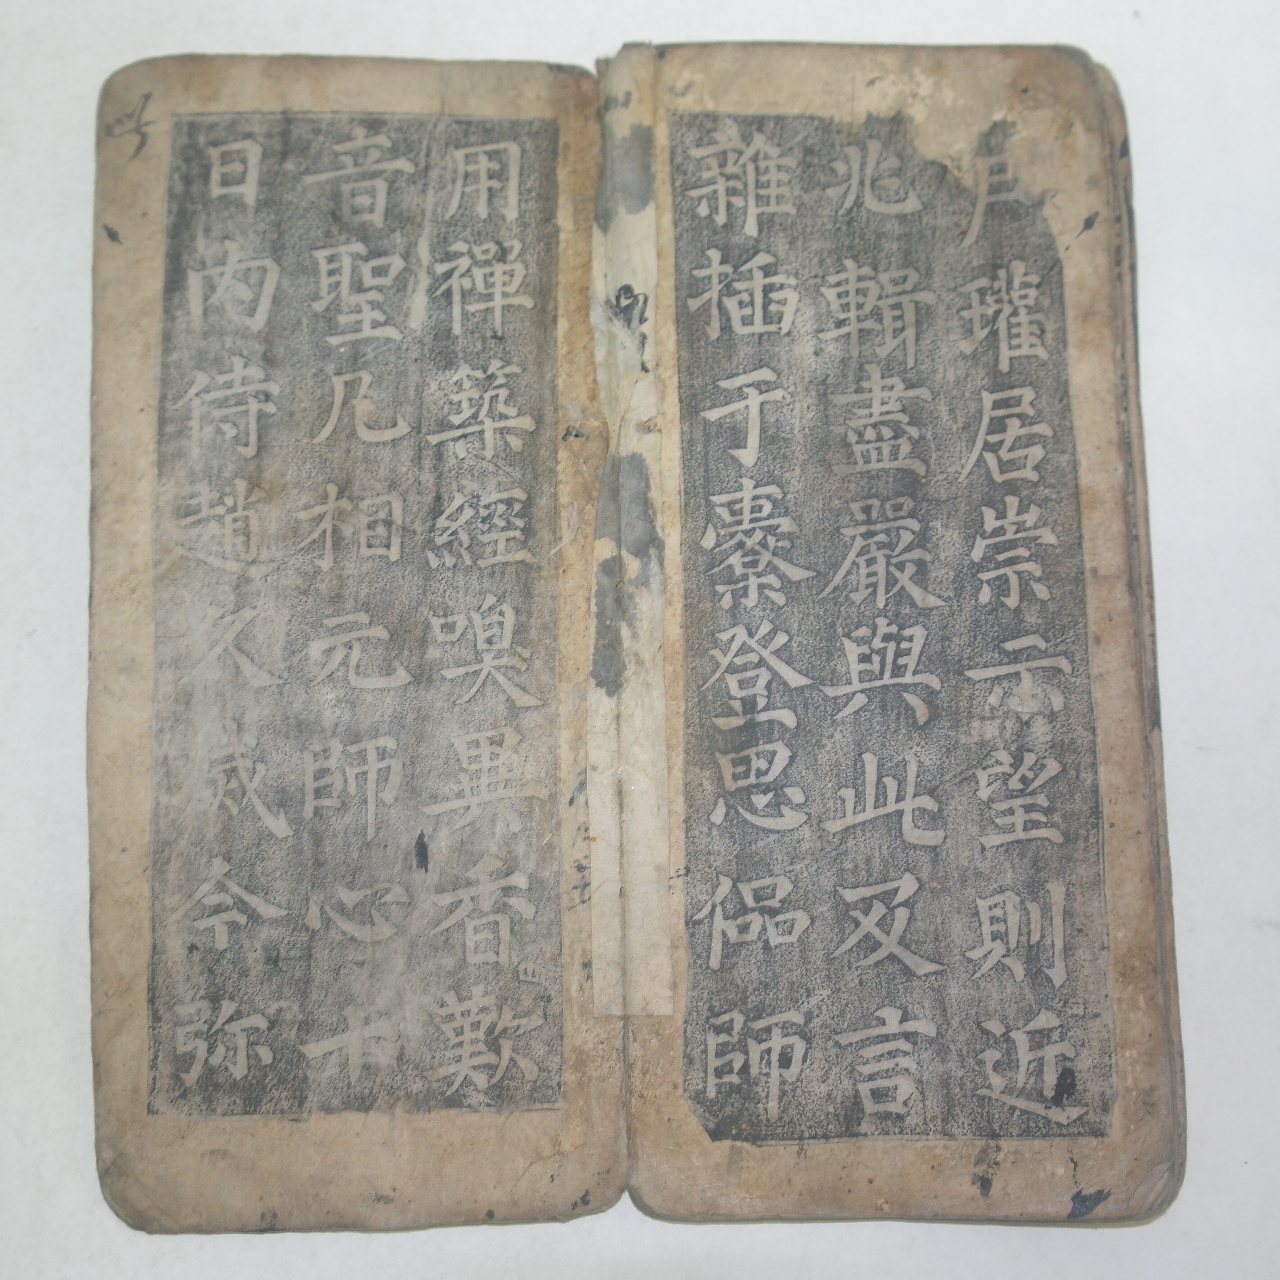 瓘居崇示望則近
兆輯盡嚴與此及言
雜插于橐登思侃師
用禪築經嗅異香歎
音聖凡相元師心十
日內侍趙久咸今弥